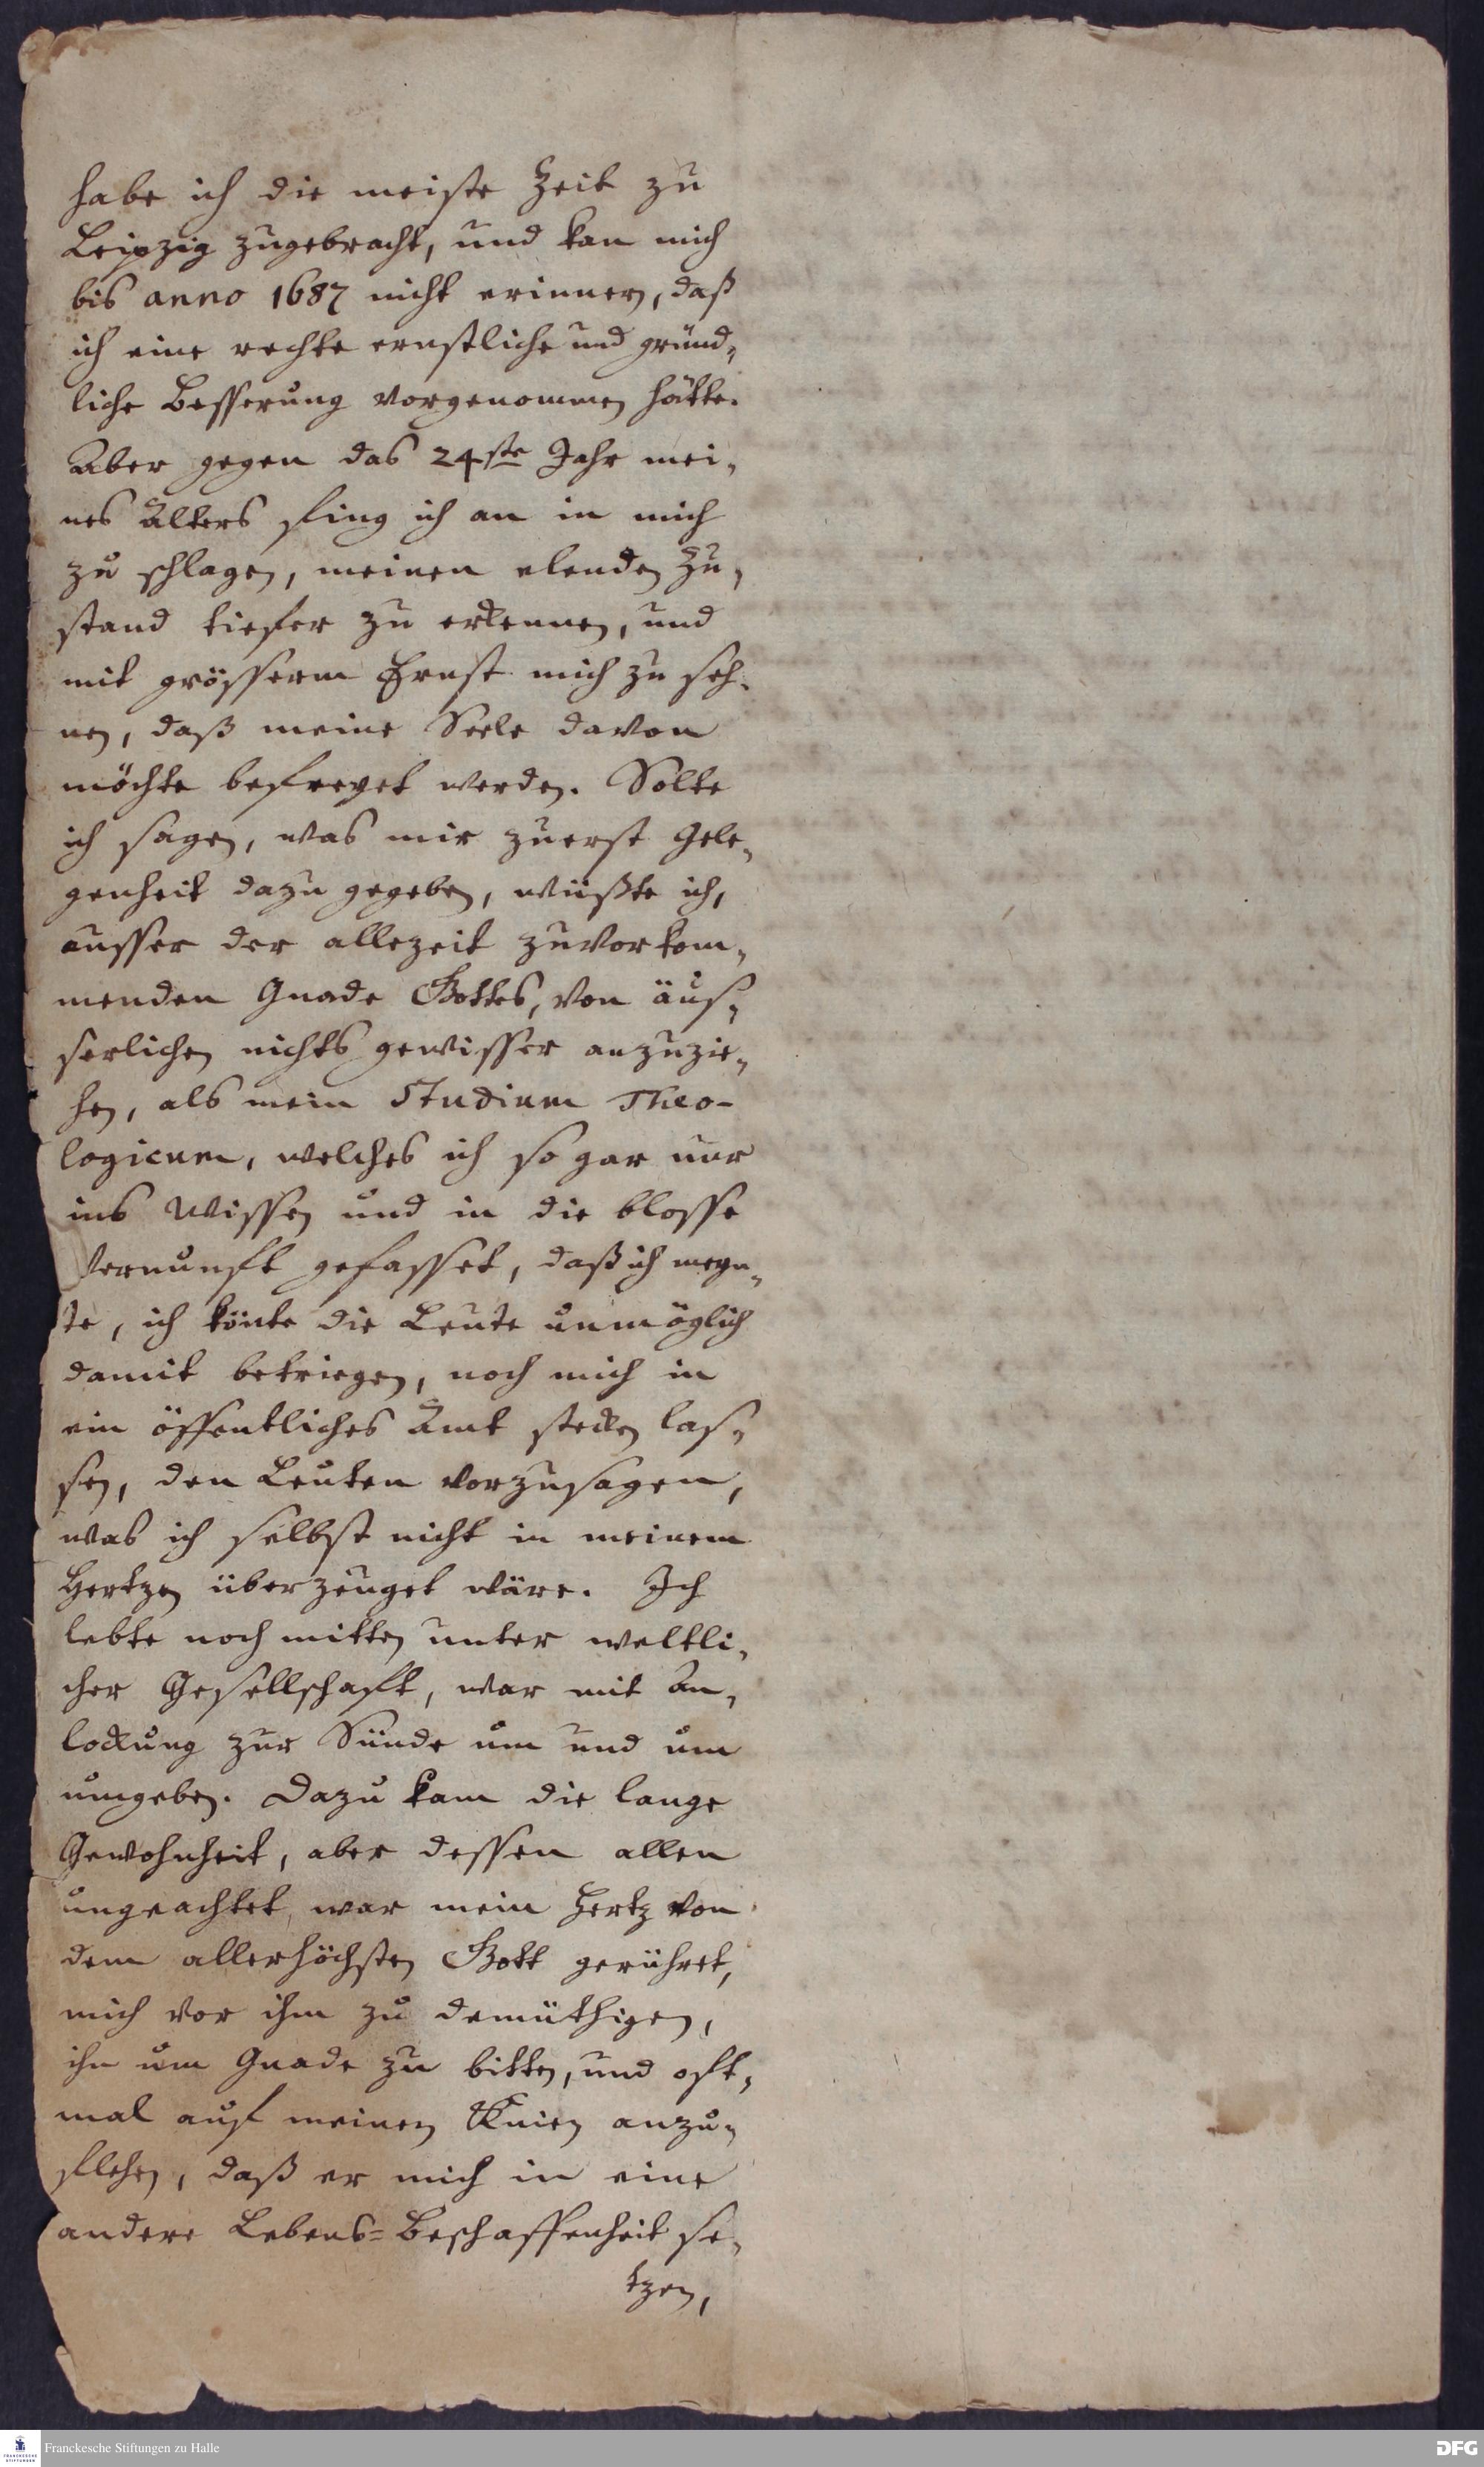 habe ich die meiste Zeit zu
Leipzig zugebracht, und kan mich
bis anno 1687 nicht erinnern, daß
ich eine rechte ernstliche und gründ-
liche Besserung vorgenommen hätte.
Aber gegen das 24ste Jahr mei-
nes Alters fing ich an in mich
zu schlagen, meinen elenden Zu-
stand tiefer zu erkennen, und
mit grösserm Ernst mich zu seh-
nen, daß meine Seele davon
möchte befreyet werden. Solte
ich sagen, was mir zuerst Gele-
genheit dazu gegeben, wüßte ich,
ausser der allezeit zuvorkom-
menden Gnade Gottes, von äus-
serlichen nichts gewisser anzuzie-
hen, als mein Studium Theo-
logicum, welches ich so gar nur
ins Wissen und in die blosse
Vernunft gefasset, daß ich meyn-
te, ich könte die Leute unmöglich
damit betriegen, noch mich in
ein öffentliches Amt stecken las-
sen, den Leuten vorzusagen,
was ich selbst nicht in meinem
Hertzen überzeuget wäre. Ich
lebte noch mitten unter weltli-
cher Gesellschaft, war mit An-
lockung zur Sünde um und um
umgeben. Dazu kam die lange
Gewohnheit, aber dessen allen
ungeachtet, war mein Hertz von
dem allerhöchsten Gott gerühret,
mich vor ihm zu demüthigen,
ihn um Gnade zu bitten, und oft-
mal auf meinen Knien anzu-
flehen, daß er mich in eine
andere Lebens-Beschaffenheit se-
tzen,
Franckesche Stiftungen zu Halle
DFG